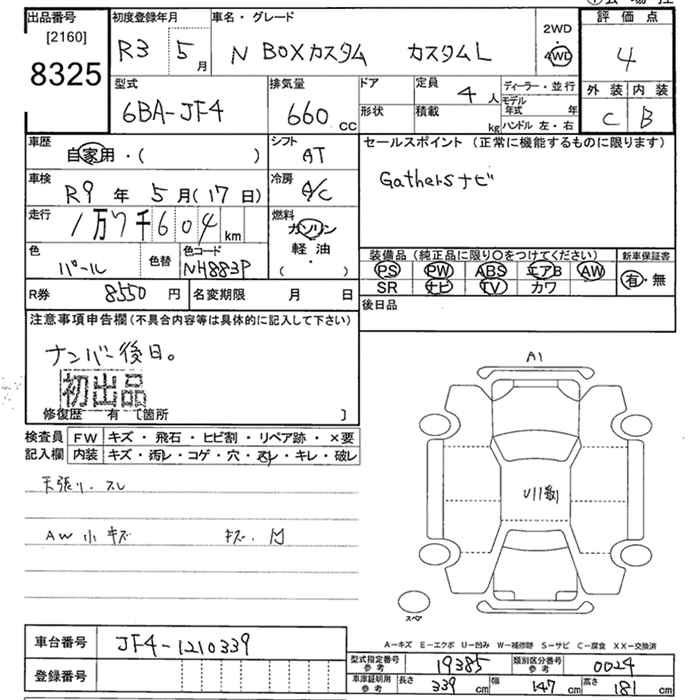 出品番号
[2160]
8325
初度登録年月
R3 5月
車名・グレード
N BOXカスタム カスタムL
2WD
4WD
評価点
4
型式
6BA-JF4
排気量
660 CC
ドア
形状
定員
4 人
積載
kg
ディーラー・並行
モデル年式 年
ハンドル 左・右
外装 内装
C B
車歴
自家用・( )
シフト
AT
セールスポイント (正常に機能するものに限ります)
Gathersナビ
車検
R9 年 5 月(17 日)
冷房
A/C
走行
1万7千604 km
燃料
ガソリン
軽油
( )
色
パール
色替
色コード
NH883P
装備品 (純正品に限り○をつけてください)
新車保証書
PS PW ABS エアB AW
SR ナビ TV カワ
有・無
R券
8550 円
名変期限 月 日
後日品
注意事項申告欄(不具合内容等は具体的に記入して下さい)
ナンバー後日。
初出品
修復歴 有 [箇所 ]
検査員
記入欄
FW キズ・飛石・ヒビ割・リペア跡・×要
内装 キズ・汚レ・コゲ・穴・スレ・キレ・破レ
天張り、スレ
AW 小キズ キズ、凹
A1
U11
スペア
A-キズ E-エクボ U-凹み W-補修跡 S-サビ C-腐食 XX-交換済
車台番号
JF4-1210339
登録番号
型式指定番号
参考
19385
類別区分番号
参考
0024
車庫証明用
参考
長さ 339 cm 幅 147 cm 高さ 181 cm